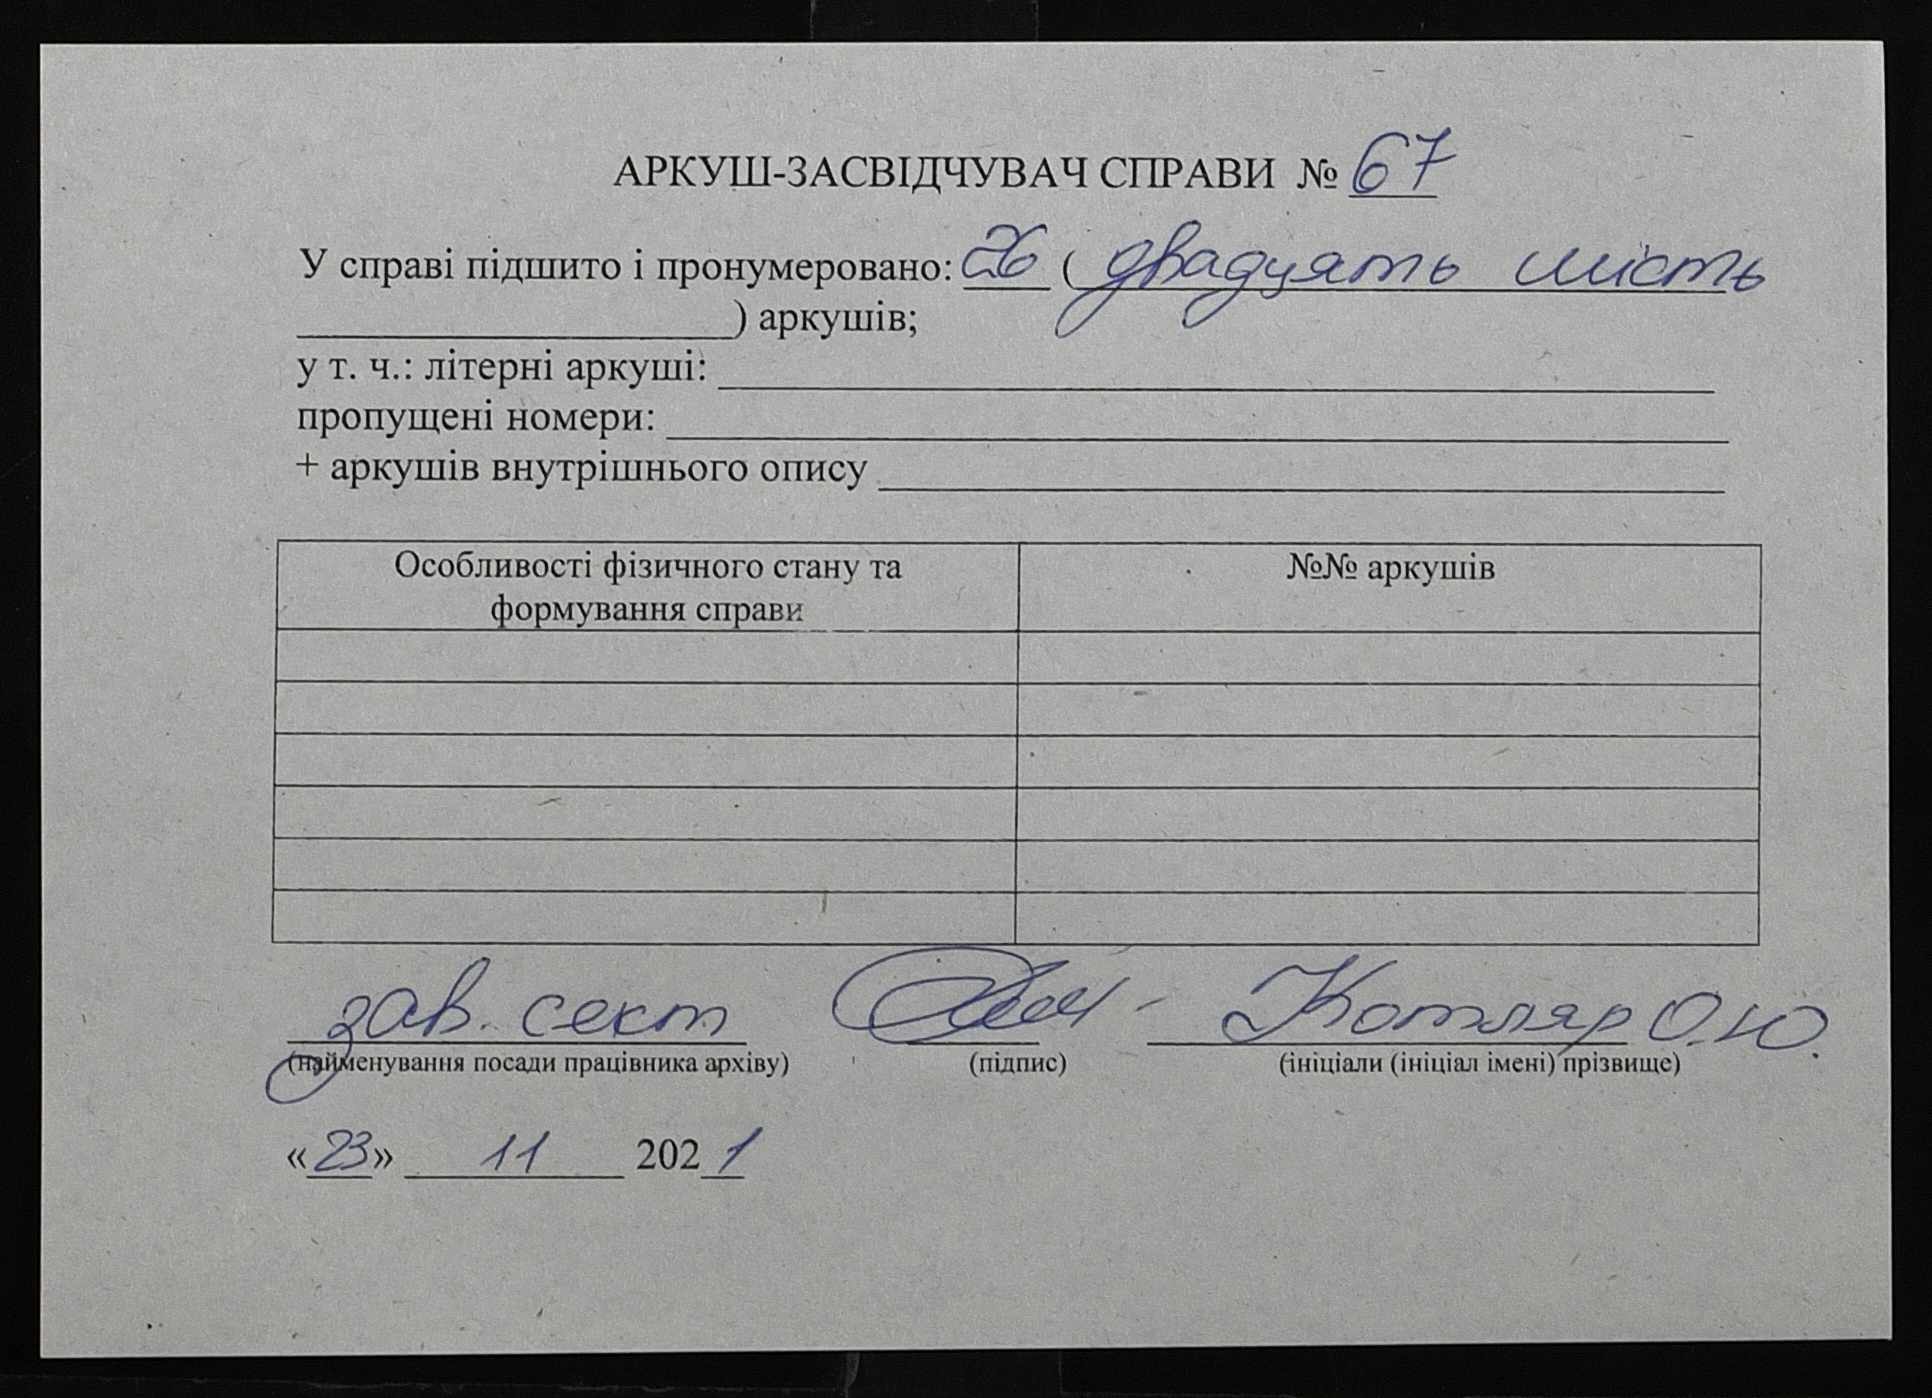 АРКУШ-ЗАСВІДЧУВАЧ СПРАВИ № 67
У справі підшито і пронумеровано: 26 ( двадцять шість
) аркушів;
у т. ч.: літерні аркуші:
пропущені номери:
+ аркушів внутрішнього опису
Особливості фізичного стану та
формування справи
№№ аркушів
зав. сект Котляр О.Ю.
(найменування посади працівника архіву) (підпис) (ініціали (ініціал імені) прізвище)
«23» 11 2021